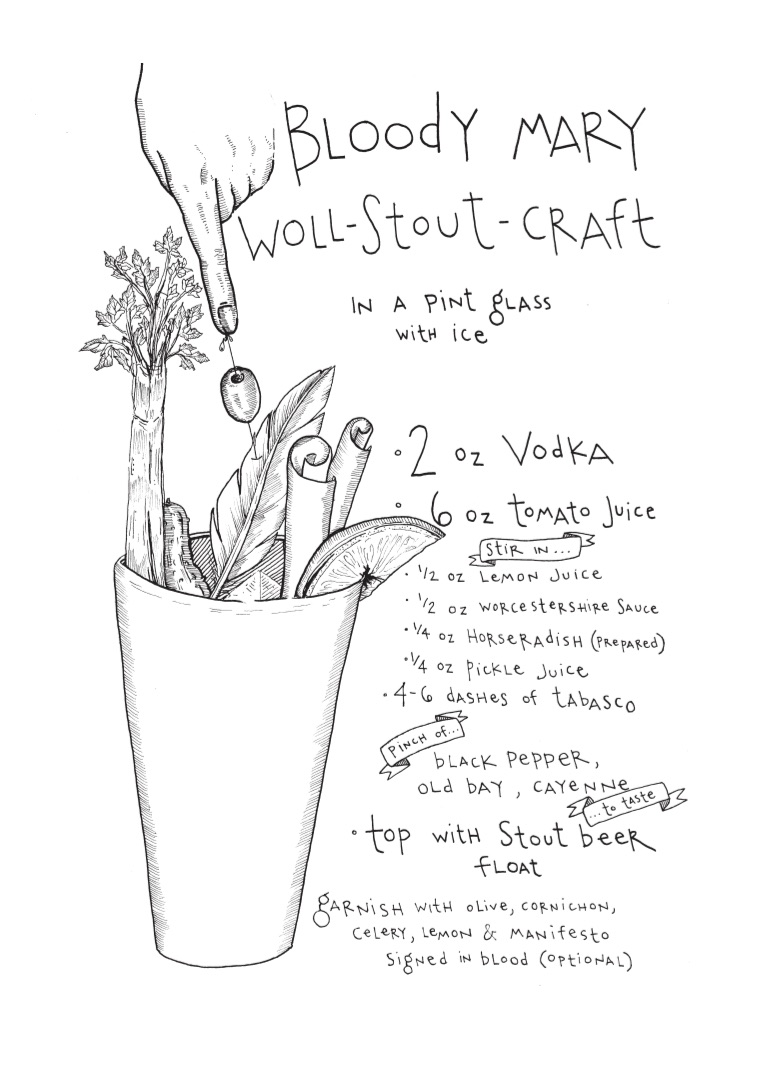 Bloody MARY
WOLL-Stout-CRAft
IN A PINT glass
with ice
• 2 oz Vodka
• 6 oz tomato Juice
Stir in...
• 1/2 oz Lemon Juice
• 1/2 oz Worcestershire Sauce
• 1/4 oz Horseradish (Prepared)
• 1/4 oz Pickle Juice
• 4-6 dashes of tabasco
Pinch of...
black Pepper,
Old bay, Cayenne
...to taste
• top with Stout beer
float
garnish with olive, cornichon,
celery, lemon & manifesto
signed in blood (optional)